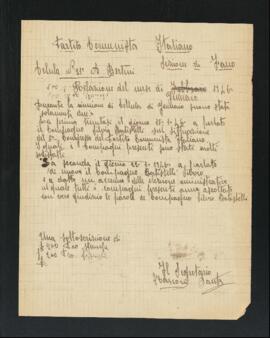 Partito Comunista Italiano
Sezione di Fano
Cellula N° 25 A. Bertini
Relazione del mese di Febbraio 1946
Gennaio
Durante la riunione di cellula di Gennaio sono state
solamente due:
La prima tenutasi il giorno 1946 a parlato
il compagno Silvio Battistelli sul
del V° Congresso del Partito Comunista Italiano
i compagni presenti sono stati molti
La seconda il giorno 1946 a parlato
di nuovo il compagno Battistelli Silvio
a dato un accenno delle elezioni amministrative
al quale tutti i compagni presenti anno ascoltato
con vero giudizio le parole di compagno Silvio Battistelli
Una sottoscrizione di
£ 200 Pro Stampa
£ 200 Pro
Il Segretario